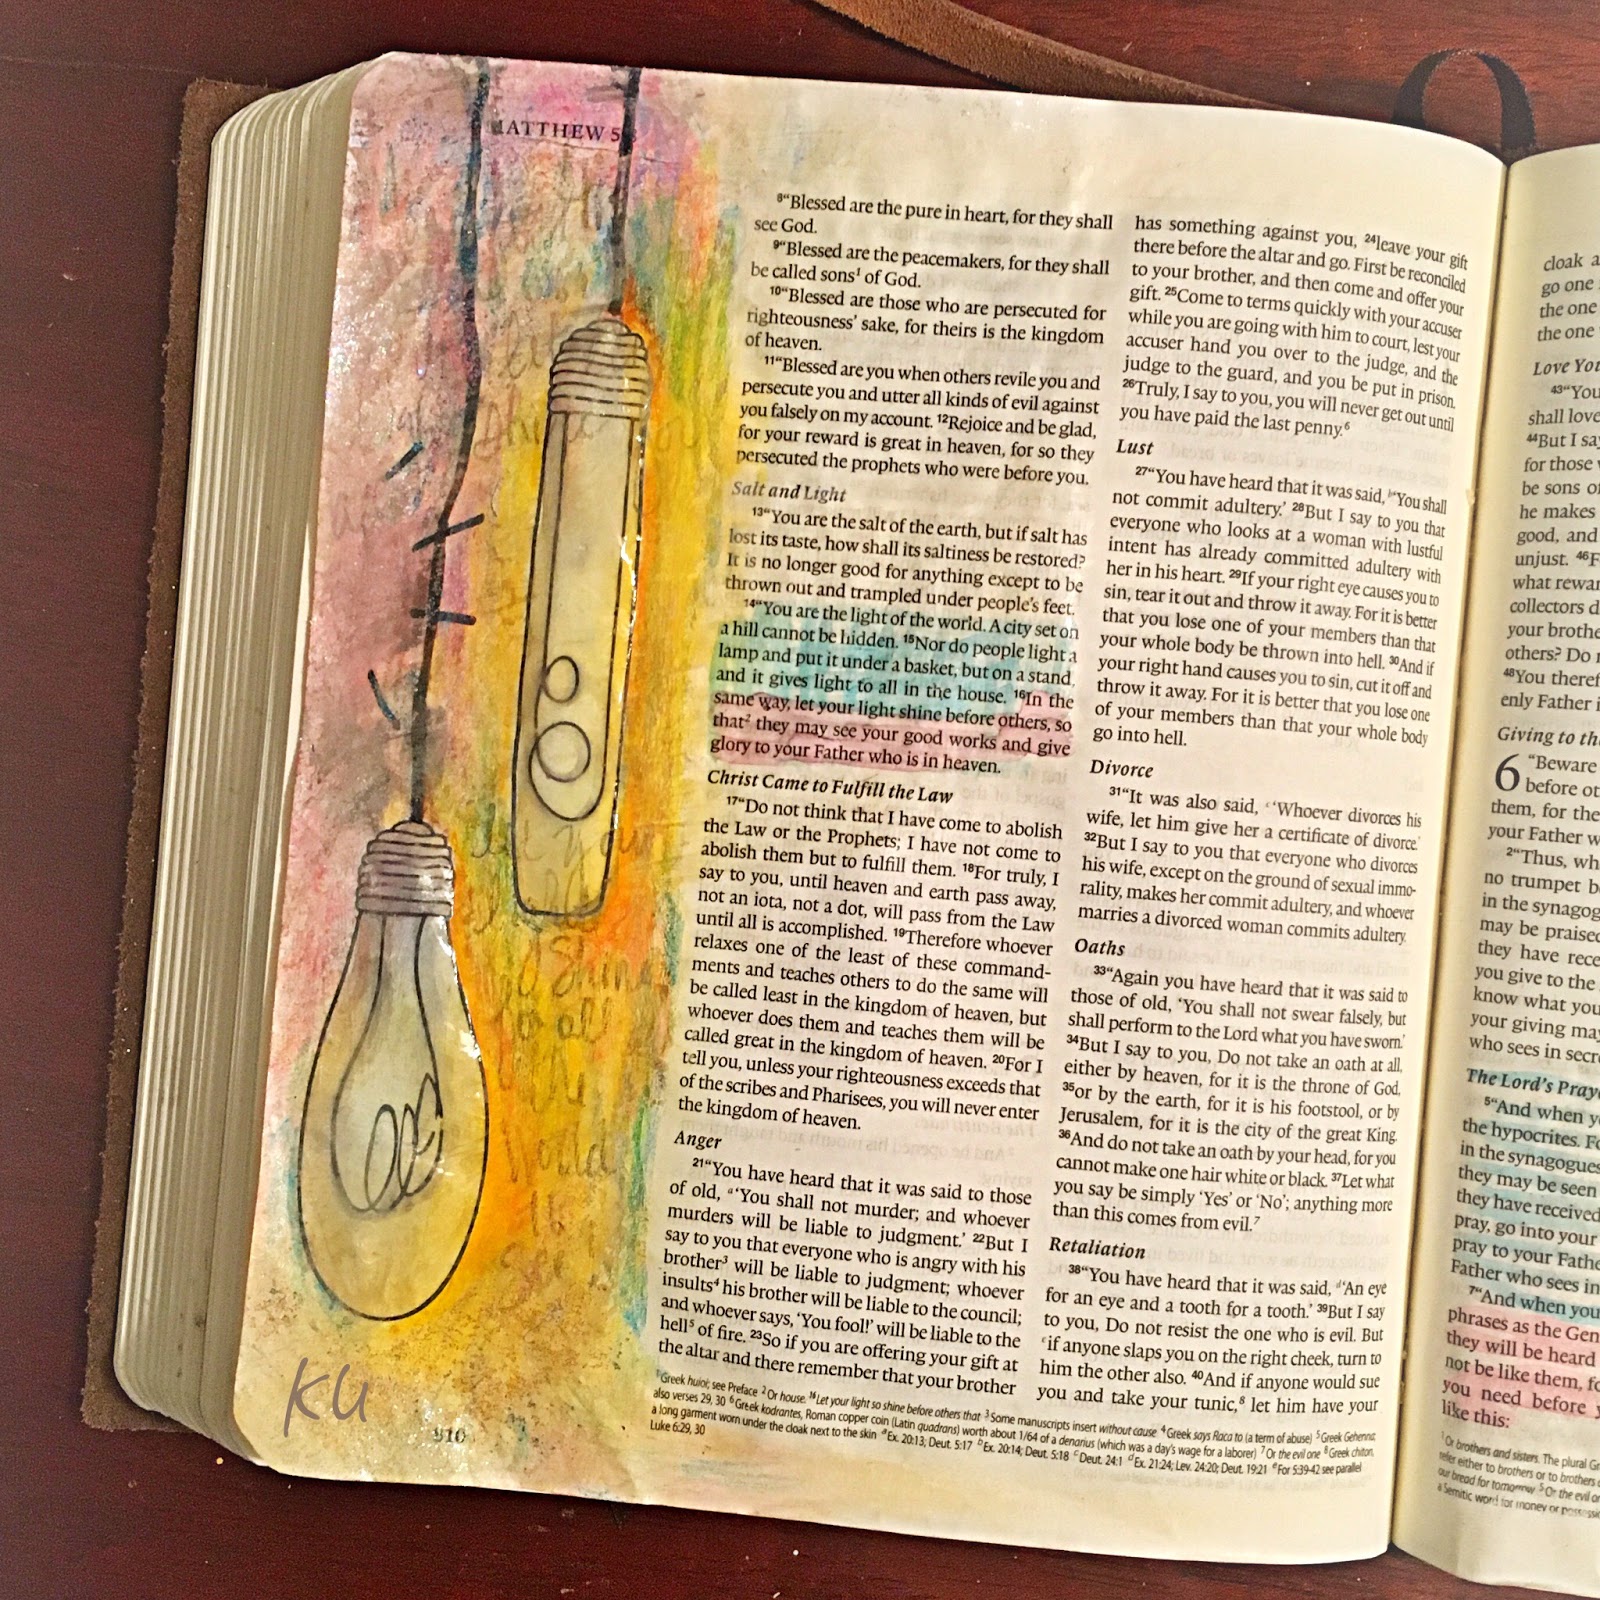 MATTHEW 5
8“Blessed are the pure in heart, for they shall
see God.
9“Blessed are the peacemakers, for they shall
be called sons1 of God.
10“Blessed are those who are persecuted for
righteousness’ sake, for theirs is the kingdom
of heaven.
11“Blessed are you when others revile you and
persecute you and utter all kinds of evil against
you falsely on my account. 12Rejoice and be glad,
for your reward is great in heaven, for so they
persecuted the prophets who were before you.
Salt and Light
13“You are the salt of the earth, but if salt has
lost its taste, how shall its saltiness be restored?
It is no longer good for anything except to be
thrown out and trampled under people’s feet.
14“You are the light of the world. A city set on
a hill cannot be hidden. 15Nor do people light a
lamp and put it under a basket, but on a stand,
and it gives light to all in the house. 16In the
same way, let your light shine before others, so
that2 they may see your good works and give
glory to your Father who is in heaven.
Christ Came to Fulfill the Law
17“Do not think that I have come to abolish
the Law or the Prophets; I have not come to
abolish them but to fulfill them. 18For truly, I
say to you, until heaven and earth pass away,
not an iota, not a dot, will pass from the Law
until all is accomplished. 19Therefore whoever
relaxes one of the least of these command-
ments and teaches others to do the same will
be called least in the kingdom of heaven, but
whoever does them and teaches them will be
called great in the kingdom of heaven. 20For I
tell you, unless your righteousness exceeds that
of the scribes and Pharisees, you will never enter
the kingdom of heaven.
Anger
21“You have heard that it was said to those
of old, a‘You shall not murder; and whoever
murders will be liable to judgment.’ 22But I
say to you that everyone who is angry with his
brother3 will be liable to judgment; whoever
insults4 his brother will be liable to the council;
and whoever says, ‘You fool!’ will be liable to the
hell5 of fire. 23So if you are offering your gift at
the altar and there remember that your brother
has something against you, 24leave your gift
there before the altar and go. First be reconciled
to your brother, and then come and offer your
gift. 25Come to terms quickly with your accuser
while you are going with him to court, lest your
accuser hand you over to the judge, and the
judge to the guard, and you be put in prison.
26Truly, I say to you, you will never get out until
you have paid the last penny.6
Lust
27“You have heard that it was said, b‘You shall
not commit adultery.’ 28But I say to you that
everyone who looks at a woman with lustful
intent has already committed adultery with
her in his heart. 29If your right eye causes you to
sin, tear it out and throw it away. For it is better
that you lose one of your members than that
your whole body be thrown into hell. 30And if
your right hand causes you to sin, cut it off and
throw it away. For it is better that you lose one
of your members than that your whole body
go into hell.
Divorce
31“It was also said, c‘Whoever divorces his
wife, let him give her a certificate of divorce.’
32But I say to you that everyone who divorces
his wife, except on the ground of sexual immo-
rality, makes her commit adultery, and whoever
marries a divorced woman commits adultery.
Oaths
33“Again you have heard that it was said to
those of old, ‘You shall not swear falsely, but
shall perform to the Lord what you have sworn.’
34But I say to you, Do not take an oath at all,
either by heaven, for it is the throne of God,
35or by the earth, for it is his footstool, or by
Jerusalem, for it is the city of the great King.
36And do not take an oath by your head, for you
cannot make one hair white or black. 37Let what
you say be simply ‘Yes’ or ‘No’; anything more
than this comes from evil.7
Retaliation
38“You have heard that it was said, d‘An eye
for an eye and a tooth for a tooth.’ 39But I say
to you, Do not resist the one who is evil. But
eif anyone slaps you on the right cheek, turn to
him the other also. 40And if anyone would sue
you and take your tunic,8 let him have your
1Greek huioi; see Preface 2Or house. 16Let your light so shine before others that 3Some manuscripts insert without cause 4Greek says Raca to (a term of abuse) 5Greek Gehenna;
also verses 29, 30 6Greek kodrantes, Roman copper coin (Latin quadrans) worth about 1/64 of a denarius (which was a day’s wage for a laborer) 7Or the evil one 8Greek chiton,
a long garment worn under the cloak next to the skin aEx. 20:13; Deut. 5:17 bEx. 20:14; Deut. 5:18 cDeut. 24:1 dEx. 21:24; Lev. 24:20; Deut. 19:21 eFor 5:39-42 see parallel
Luke 6:29, 30
910
KU
let your
Shine
for all
the
World
to
see
cloak
go one
the one
the one
Love You
43“You
shall love
44But I say
for those
be sons of
he makes
good, and
unjust. 46F
what rewar
collectors d
your brothe
others? Do
48You theref
enly Father i
Giving to th
6 “Beware
before ot
them, for the
your Father w
2“Thus, wh
no trumpet b
in the synagog
may be praised
they have rece
you give to the
know what you
your giving may
who sees in secre
The Lord’s Praye
5“And when y
the hypocrites. Fo
in the synagogues
they may be seen
they have received
pray, go into your
pray to your Fathe
Father who sees in
7“And when you
phrases as the Gen
they will be heard
not be like them, fo
you need before y
like this:
1Or brothers and sisters. The plural Gr
refer either to brothers or to brothers
our bread for tomorrow 5Or the evil or
a Semitic word for money or possessi